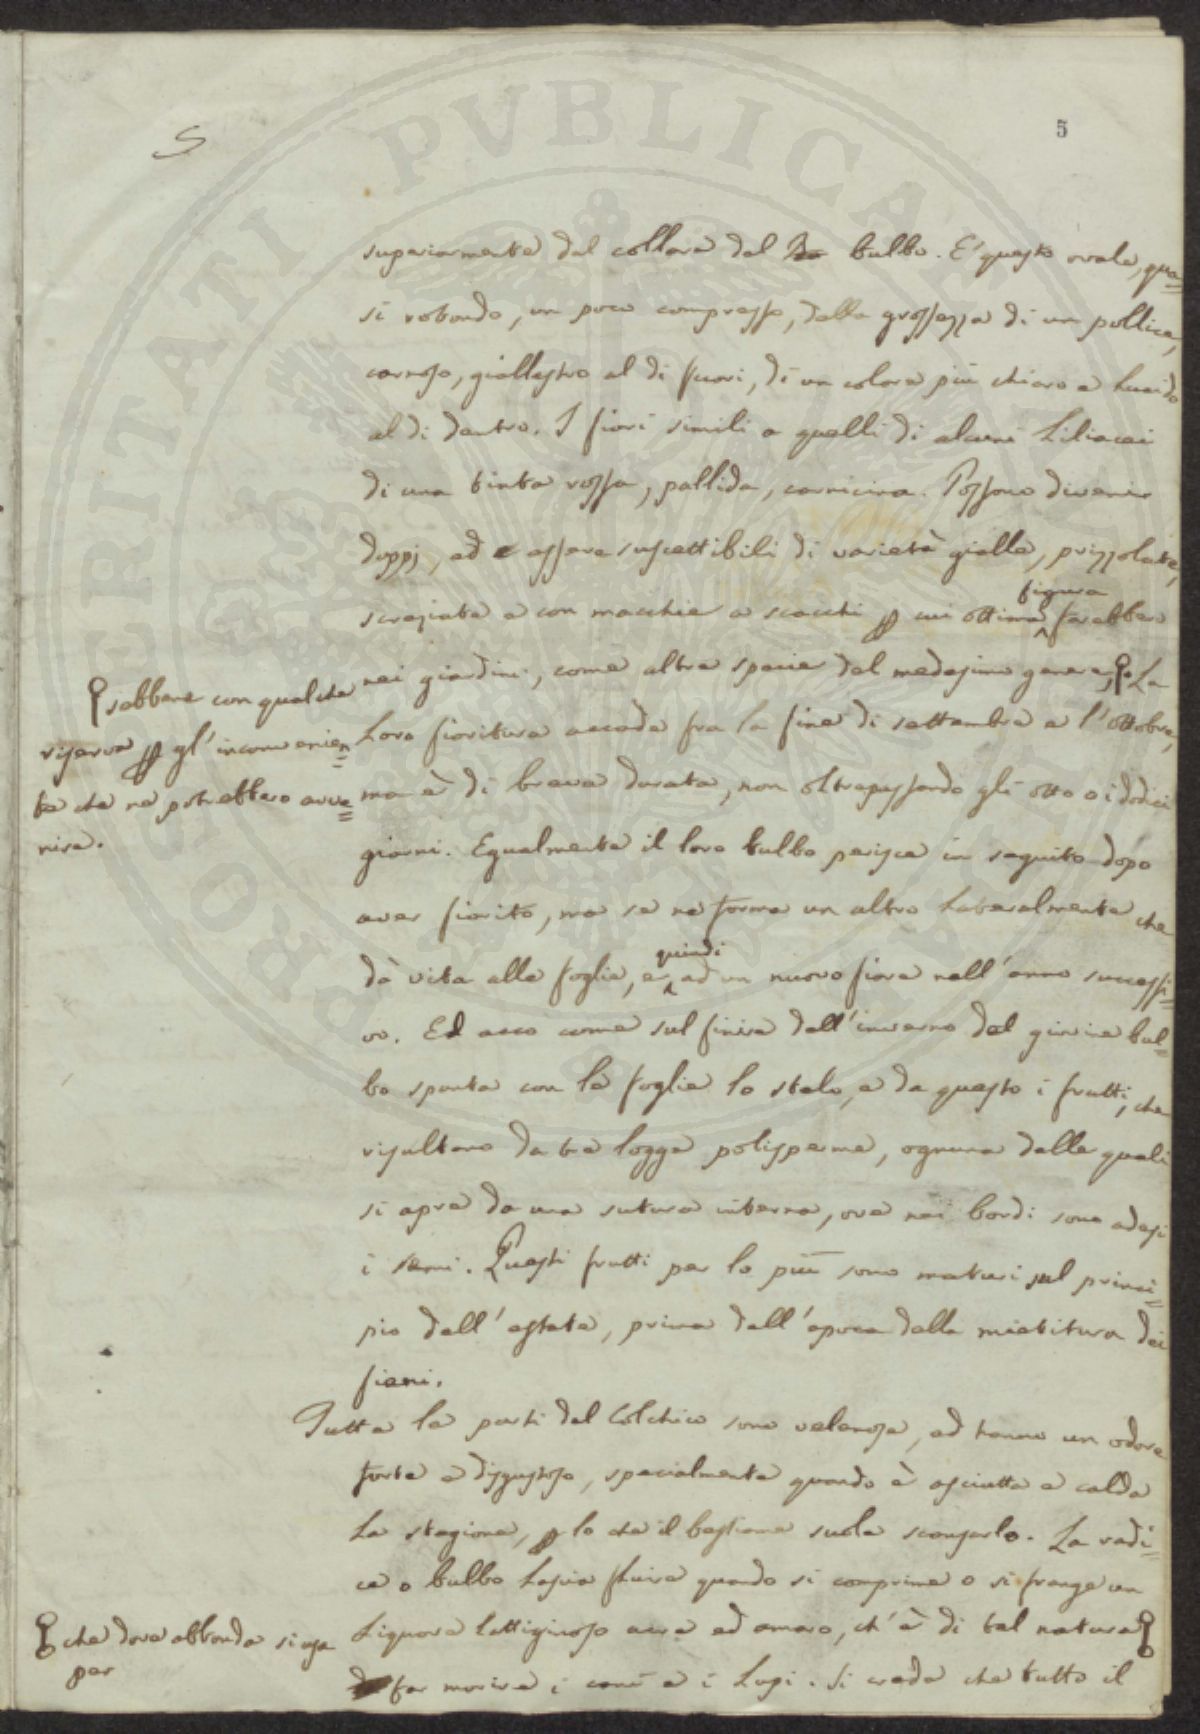 5
5
superiormente dal collare del bulbo. E' questo ovale, qua=
si rotondo, un poco compresso, della grossezza di un pollice,
carnoso, giallastro al di fuori, di un colore più chiaro e lucido
al di dentro. I fiori simili a quelli di alcuni Liliacei
di una tinta rossa, pallida, carnicina. Possono divenir
doppj, ed essere suscettibili di varietà gialle, prizzolate,
screziate e con macchie a scacchi per cui ottima figura farebbero
nei giardini, come altre specie del medesimo genere, La
sebbene con qualche
riserva per gl'inconvenien=
te che ne potrebbero avve=
nire.
Loro fioritura accade fra la fine di settembre e l'ottobre,
ma è di breve durata, non oltrepassando gli otto o i dodici
giorni. Egualmente il loro bulbo perisce in seguito dopo
aver fiorito, ma se ne forma un altro lateralmente che
dà vita alle foglie, e quindi ad un nuovo fiore nell'anno successi=
vo. Ed ecco come sul finire dell'inverno dal giovine bul=
bo spunta con le foglie lo stelo, e da questo i frutti, che
risultano da tre logge polisperme, ognuna delle quali
si apre da una sutura interna, ove nei bordi sono adesi
i semi. Questi frutti per lo più sono maturi sul princi=
pio dell'estate, prima dell'epoca della mietitura dei
fieni.
Tutte le parti del Colchico sono velenose, ed hanno un odore
forte e disgustoso, specialmente quando è asciutta e calda
la stagione, per lo che il bestiame suole scansarlo. La radi=
ce o bulbo lascia fluire quando si comprime o si frange un
Liquore lattiginoso acre ed amaro, ch'è di tal natura
che dove abbonda si usa
per
far morire i cani e i Lupi. Si crede che tutto il
PROSPERITATI PVBLICAE